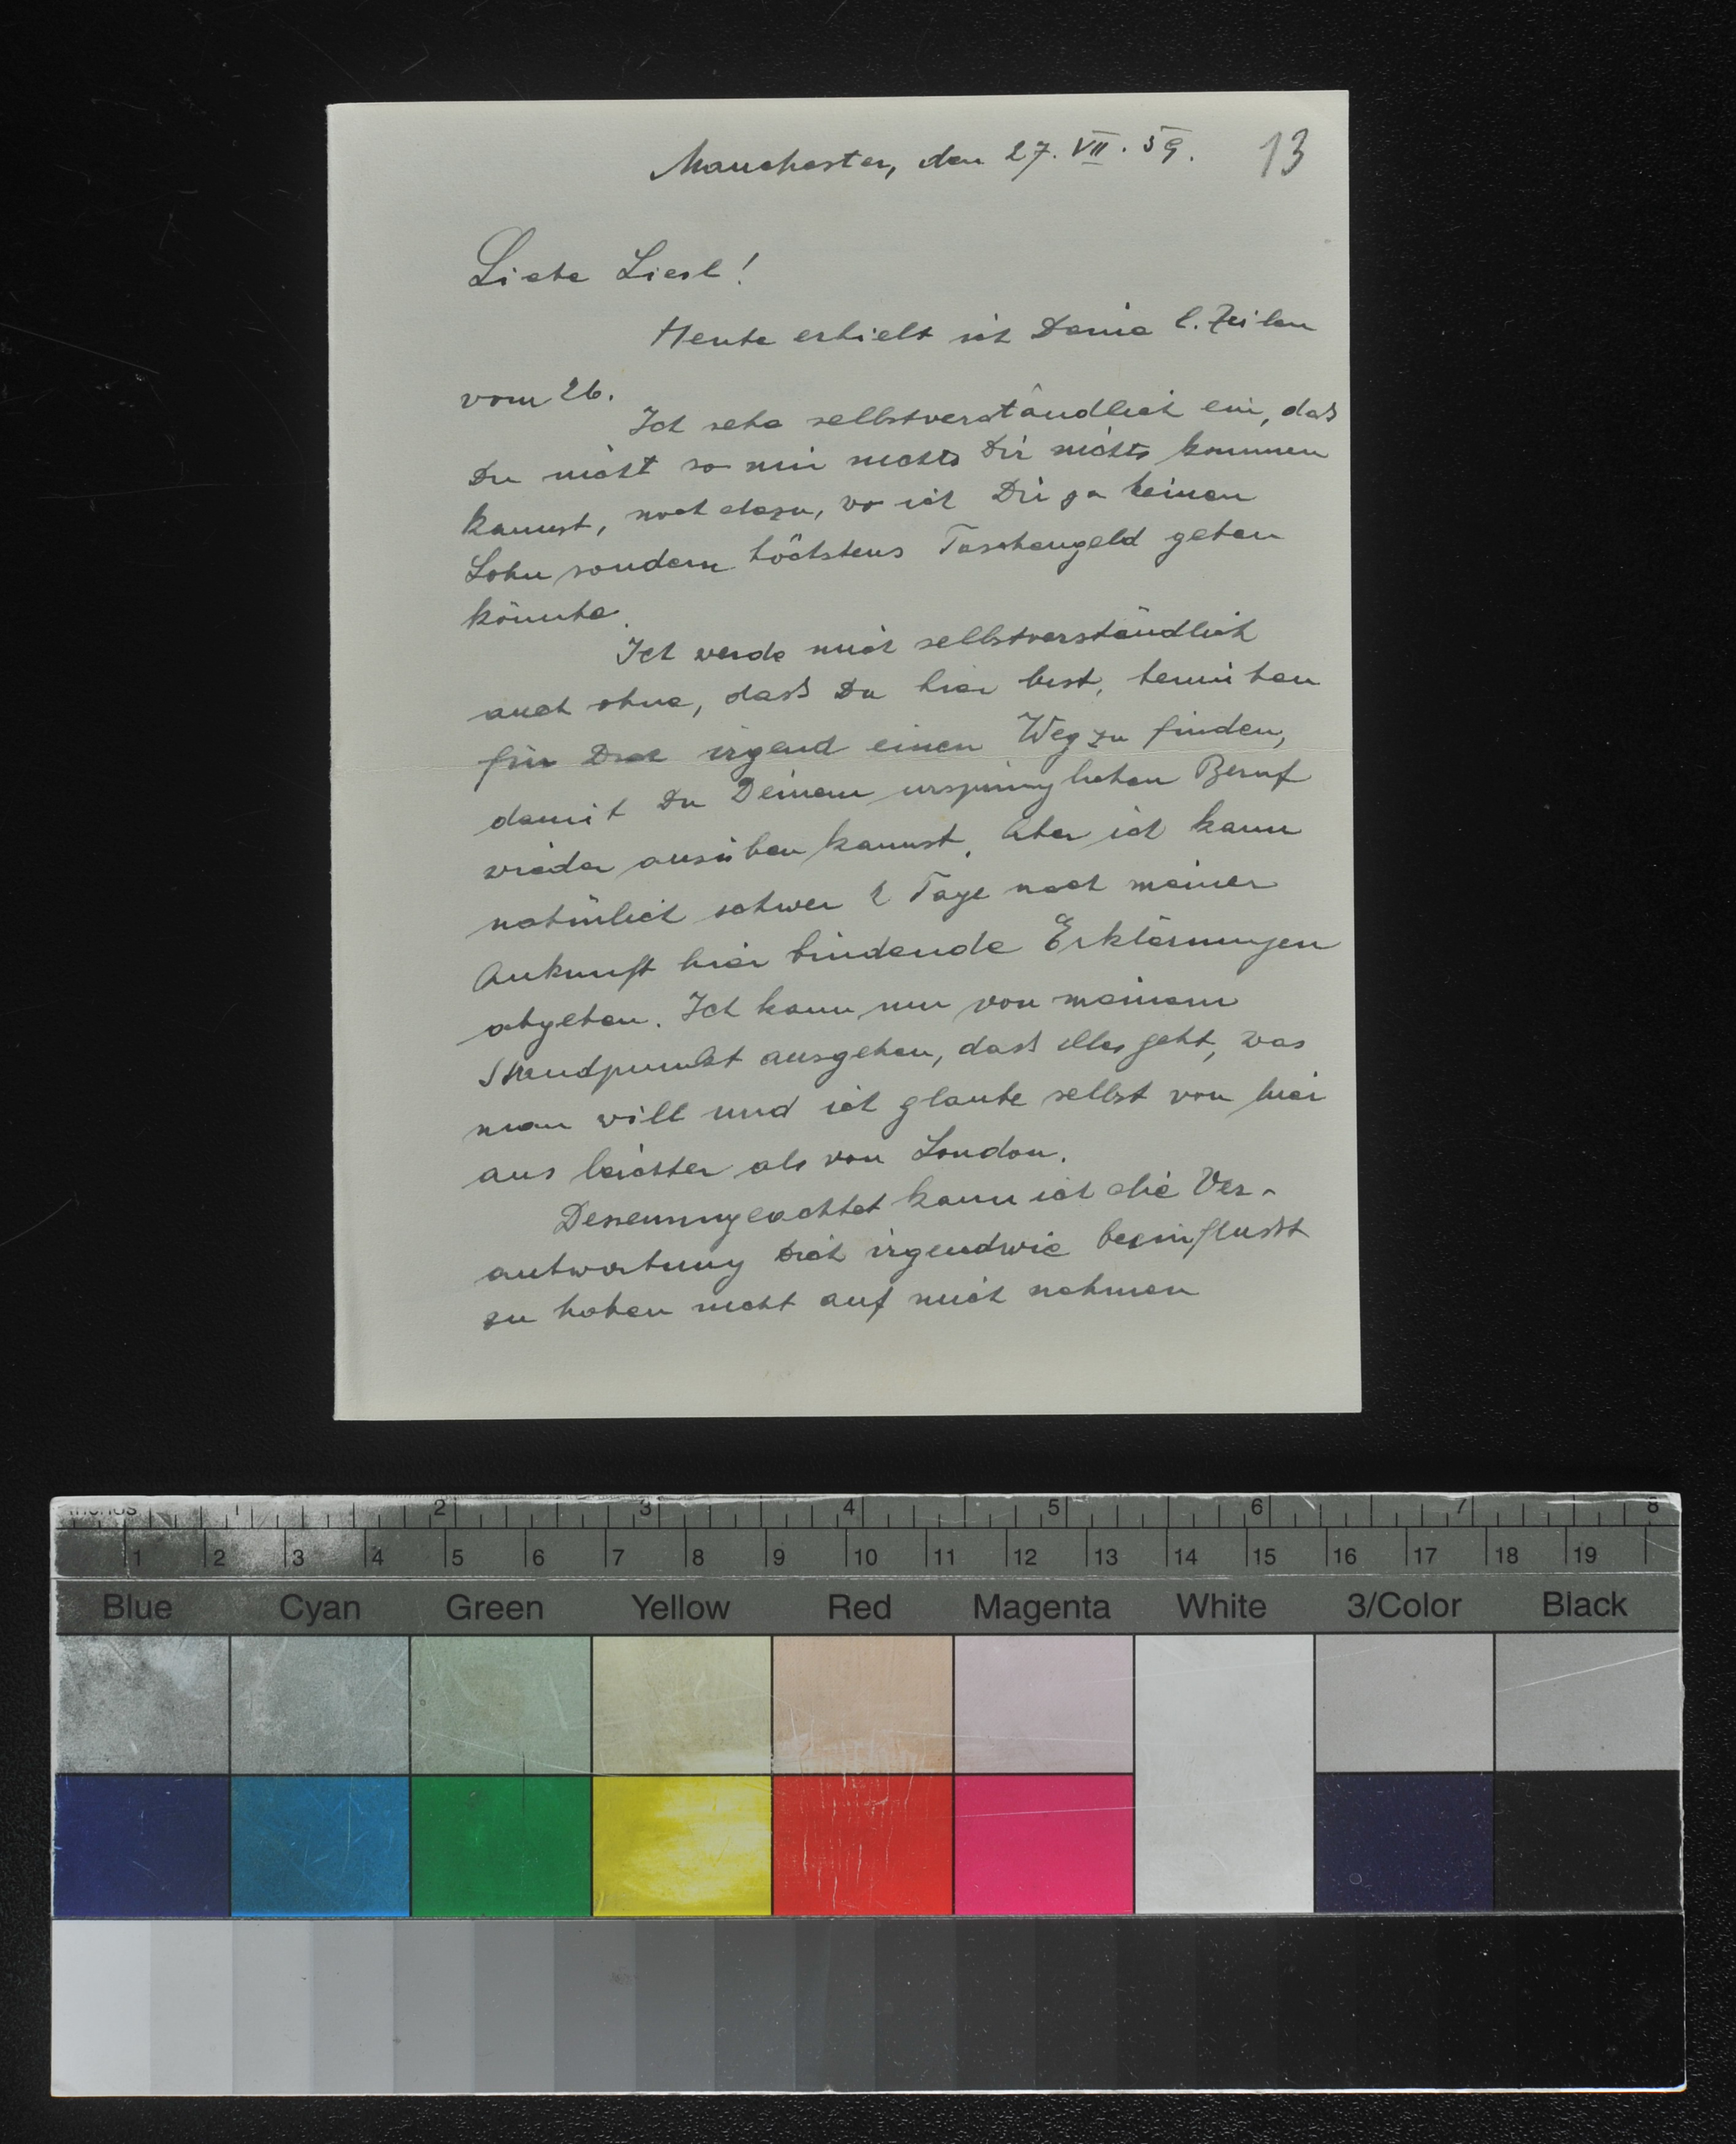 Manchester, den 27. VII. 39.
13
Liebe Liesl!
Heute erhielt ich Deine l. Zeilen
vom 26.
Ich sehe selbstverständlich ein, daß
Du nicht so mir nichts Dir nichts kommen
kannst, noch dazu, wo ich Dir ja keinen
Lohn sondern höchstens Taschengeld geben
könnte.
Ich werde mich selbstverständlich
auch ohne, dass Du hier bist, bemühen
für Dich irgend einen Weg zu finden,
damit Du Deinen ursprünglichen Beruf
wieder ausüben kannst. Aber ich kann
natürlich schwer 2 Tage nach meiner
Ankunft hier bindende Erklärungen
abgeben. Ich kann nur von meinem
Standpunkt ausgehen, dass alles geht, was
man will und ich glaube selbst von hier
aus leichter als von London.
Dessenungeachtet kann ich die Ver-
antwortung Dich irgendwie beeinflusst
zu haben nicht auf mich nehmen
inches 1 2 3 4 5 6 7 8
1 2 3 4 5 6 7 8 9 10 11 12 13 14 15 16 17 18 19
Blue Cyan Green Yellow Red Magenta White 3/Color Black